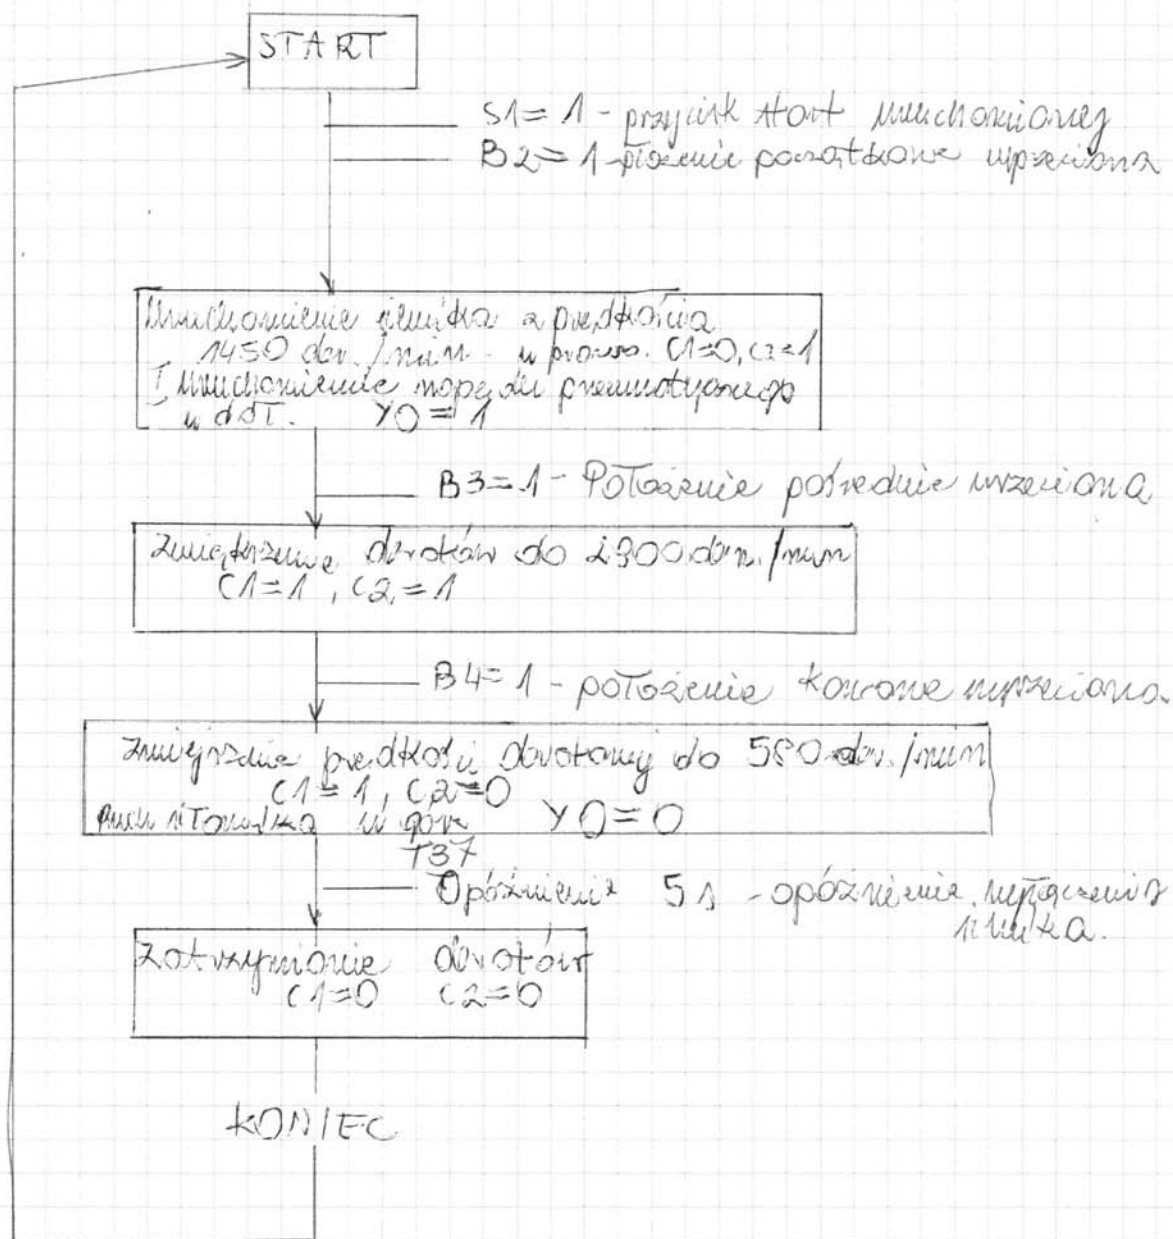 START
S1=1 - przycisk start uruchomionej
B2=1 - położenie początkowe wrzeciona
Uruchomienie silnika z prędkością
1450 obr./min - w prawo. C1=0, C2=1
I uruchomienie napędu pneumatycznego
w dół. Y0=1
B3=1 - Położenie pośrednie wrzeciona
Zwiększenie obrotów do 2900 obr./min
C1=1, C2=1
B4=1 - położenie końcowe wrzeciona
Zmniejszenie prędkości obrotowej do 580 obr./min
C1=1, C2=0
Ruch siłownika w górę Y0=0
T37
Opóźnienie 5s - opóźnienie wyłączenia
silnika.
Zatrzymianie obrotów
C1=0 C2=0
KONIEC